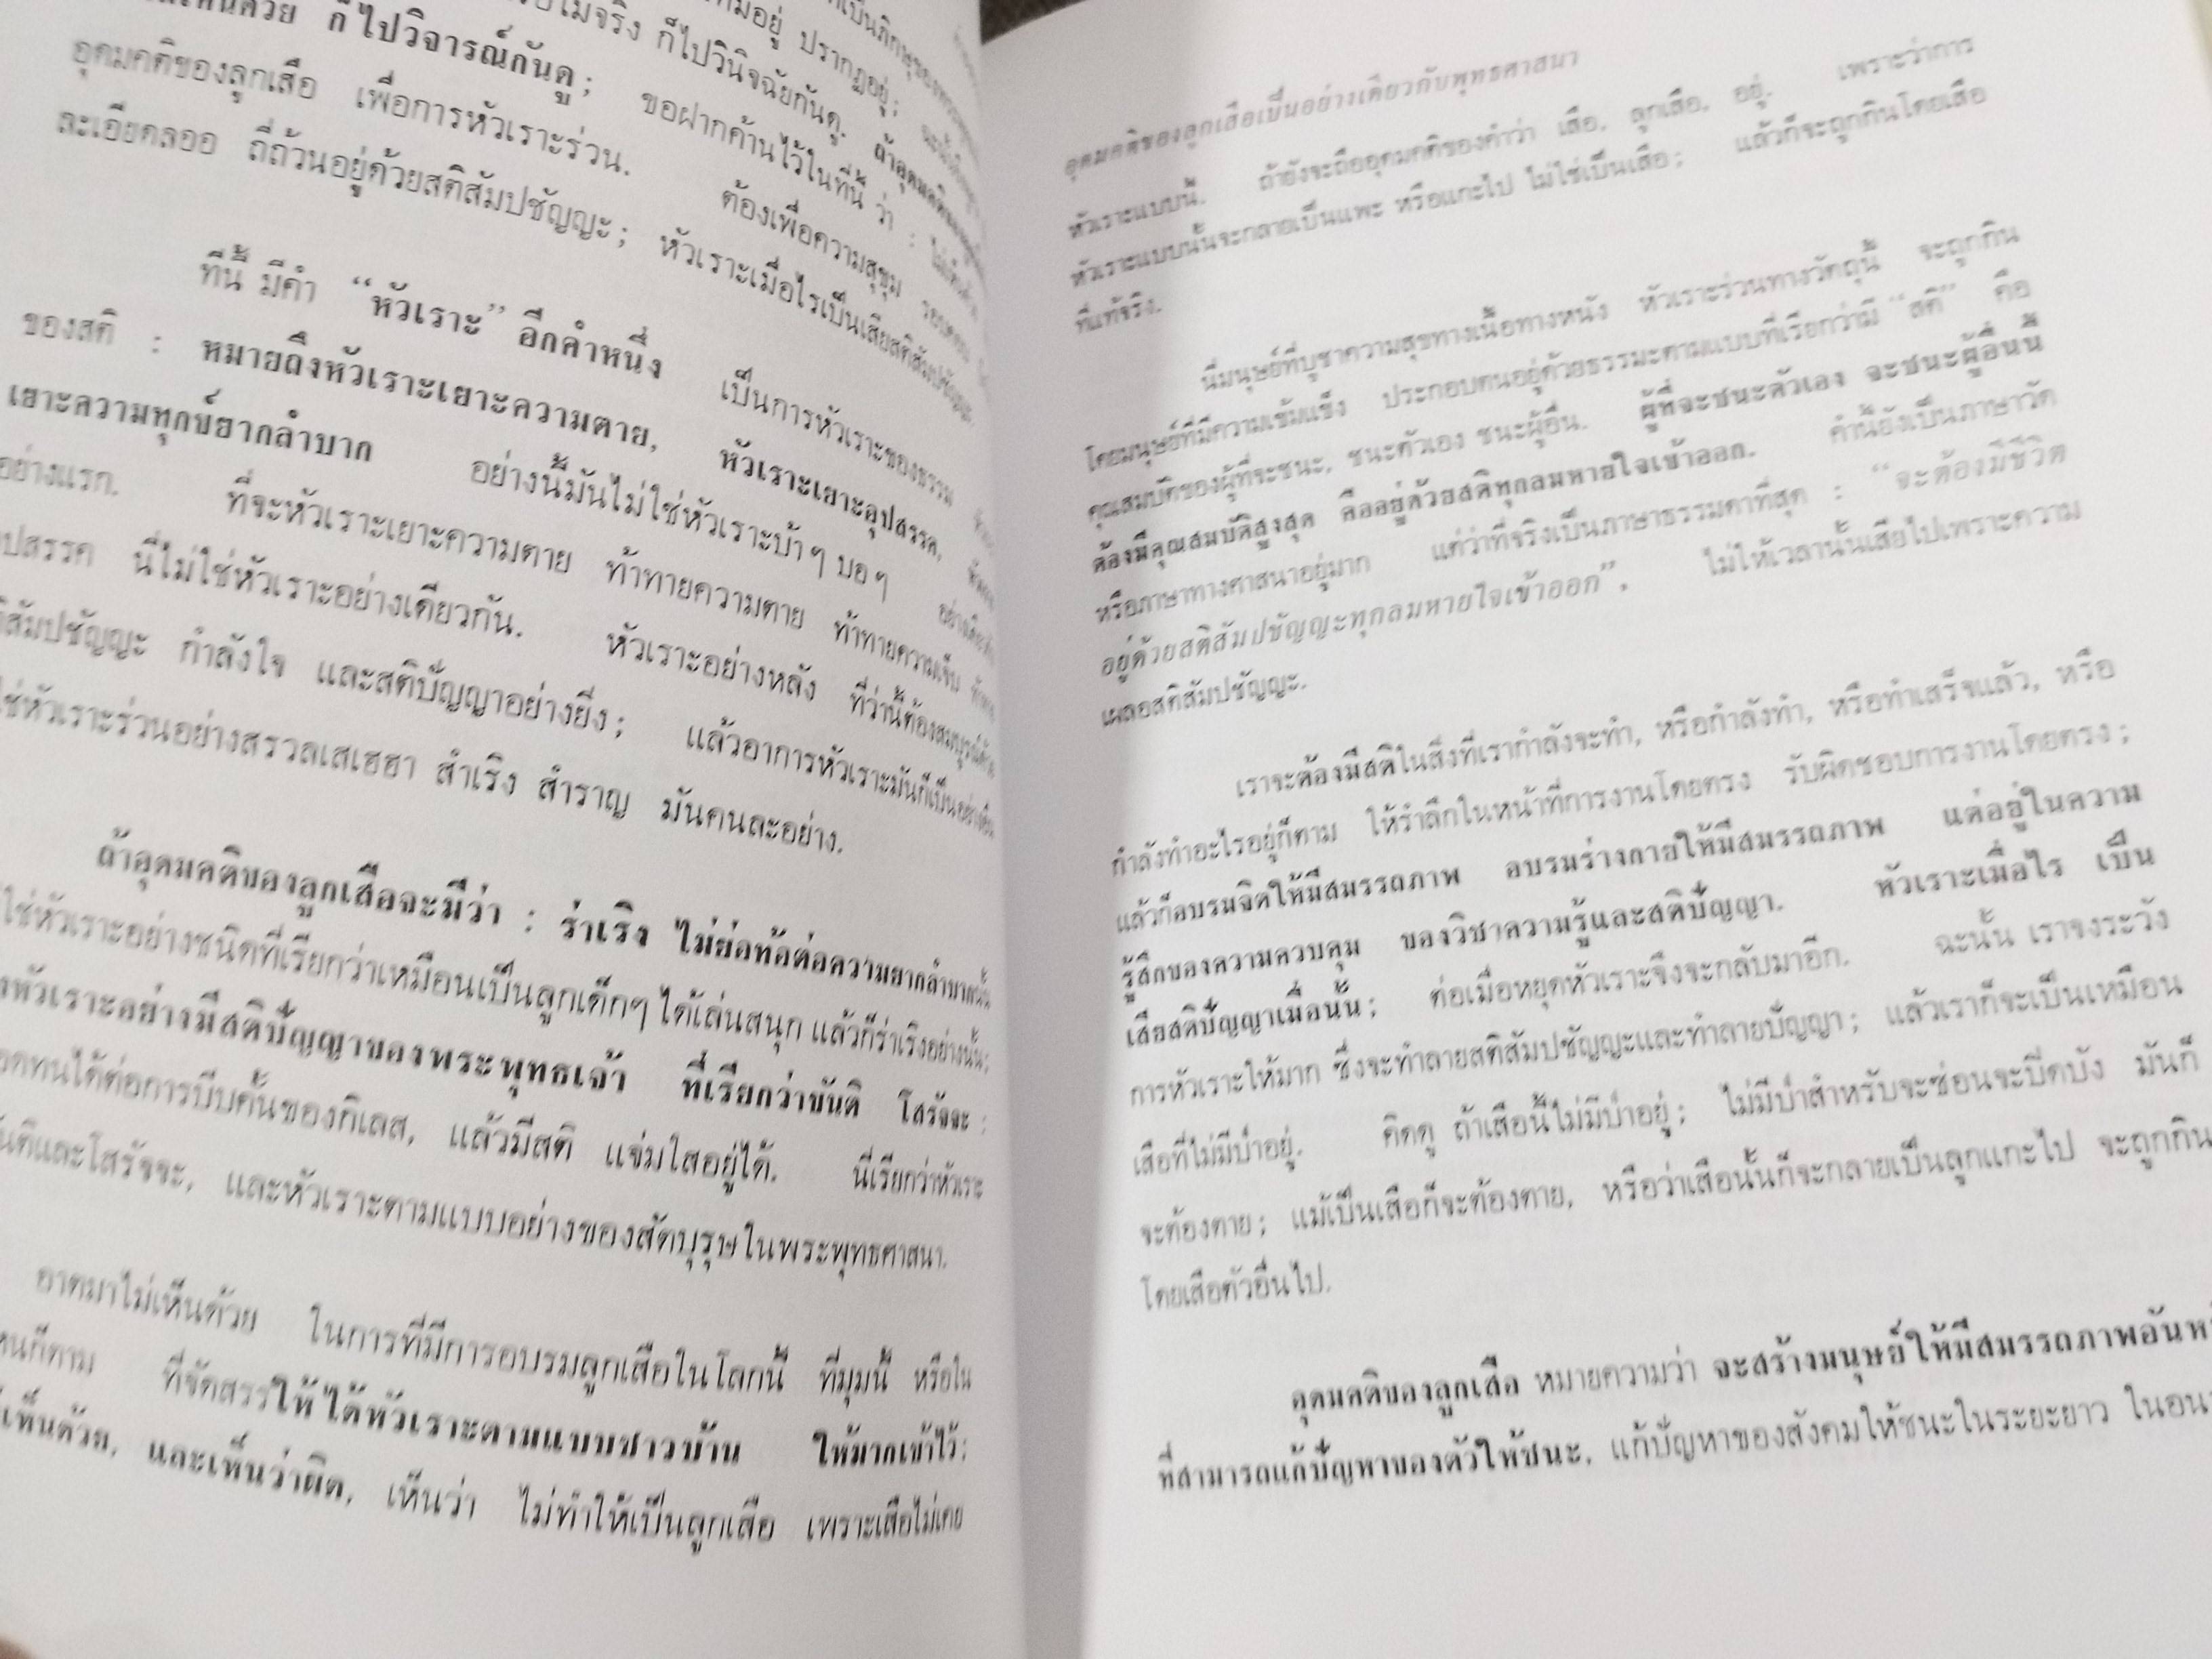 ก็ไปวินิจฉัยกันดู.
ก็ไปวิจารณ์กันดู; ขอฝากค้านไว้ในที่นี้ ว่า :
อุดมคติของลูกเสือ เพื่อการหัวเราะร่วน. ต้องเพื่อความสุขุม
ละเอียดลออ ถี่ถ้วนอยู่ด้วยสติสัมปชัญญะ; หัวเราะเมื่อไรเป็นเสียสติสัมปชัญญะ
ทีนี้ มีคำ “หัวเราะ” อีกคำหนึ่ง เป็นการหัวเราะของธรรม
ของสติ : หมายถึงหัวเราะเยาะความตาย, หัวเราะเยาะอุปสรรค,
เยาะความทุกข์ยากลำบาก อย่างนี้มันไม่ใช่หัวเราะบ้าๆ บอๆ
อย่างแรก. ที่จะหัวเราะเยาะความตาย ท้าทายความตาย ท้าทายความเจ็บ
นี่ไม่ใช่หัวเราะอย่างเดียวกัน. หัวเราะอย่างหลัง ที่ว่านี้ต้องสมบูรณ์ด้วย
กำลังใจ และสติปัญญาอย่างยิ่ง; แล้วอาการหัวเราะมันก็เป็นอย่างอื่น
ใช่หัวเราะร่วนอย่างสรวลเสเฮฮา สำเริง สำราญ มันคนละอย่าง.
ถ้าอุดมคติของลูกเสือจะมีว่า : ร่าเริง ไม่ย่อท้อต่อความยากลำบากนั้น
ใช่หัวเราะอย่างชนิดที่เรียกว่าเหมือนเป็นลูกเด็กๆ ได้เล่นสนุก แล้วก็ร่าเริงอย่างนั้น;
หัวเราะอย่างมีสติปัญญาของพระพุทธเจ้า ที่เรียกว่าขันติ โสรัจจะ :
อดทนได้ต่อการบีบคั้นของกิเลส, แล้วมีสติ แจ่มใสอยู่ได้. นี่เรียกว่าหัวเราะ
ขันติและโสรัจจะ, และหัวเราะตามแบบอย่างของสัตบุรุษในพระพุทธศาสนา.
อาตมาไม่เห็นด้วย ในการที่มีการอบรมลูกเสือในโลกนี้ ที่มุมนี้ หรือใน
ก็ตาม ที่จัดสรรให้ได้หัวเราะตามแบบชาวบ้าน ให้มากเข้าไว้;
เห็นด้วย, และเห็นว่าผิด, เห็นว่า ไม่ทำให้เป็นลูกเสือ เพราะเสือไม่เคย
อุดมคติของลูกเสือเป็นอย่างเดียวกับพุทธศาสนา
หัวเราะแบบนี้. ถ้ายังจะถืออุดมคติของคำว่า เสือ, ลูกเสือ, อยู่. เพราะว่าการ
หัวเราะแบบนั้นจะกลายเป็นแพะ หรือแกะไป ไม่ใช่เป็นเสือ; แล้วก็จะถูกกินโดยเสือ
ที่แท้จริง.
นี่มนุษย์ที่บูชาความสุขทางเนื้อทางหนัง หัวเราะร่วนทางวัตถุนี้ จะถูกกิน
โดยมนุษย์ที่มีความเข้มแข็ง ประกอบตนอยู่ด้วยธรรมะตามแบบที่เรียกว่ามี “สติ” คือ
คุณสมบัติของผู้ที่จะชนะ, ชนะตัวเอง ชนะผู้อื่น. ผู้ที่จะชนะตัวเอง จะชนะผู้อื่นนี้
ต้องมีคุณสมบัติสูงสุด คืออยู่ด้วยสติทุกลมหายใจเข้าออก. คำนี้ยังเป็นภาษาวัด
หรือภาษาทางศาสนาอยู่มาก แต่ว่าที่จริงเป็นภาษาธรรมดาที่สุด : “จะต้องมีชีวิต
อยู่ด้วยสติสัมปชัญญะทุกลมหายใจเข้าออก”, ไม่ให้เวลานั้นเสียไปเพราะความ
เผลอสติสัมปชัญญะ.
เราจะต้องมีสติในสิ่งที่เรากำลังจะทำ, หรือกำลังทำ, หรือทำเสร็จแล้ว, หรือ
กำลังทำอะไรอยู่ก็ตาม ให้รำลึกในหน้าที่การงานโดยตรง รับผิดชอบการงานโดยตรง;
แล้วก็อบรมจิตให้มีสมรรถภาพ อบรมร่างกายให้มีสมรรถภาพ แต่อยู่ในความ
รู้สึกของความควบคุม ของวิชาความรู้และสติปัญญา. หัวเราะเมื่อไร เป็น
เสียสติปัญญาเมื่อนั้น; ต่อเมื่อหยุดหัวเราะจึงจะกลับมาอีก. ฉะนั้น เราจงระวัง
การหัวเราะให้มาก ซึ่งจะทำลายสติสัมปชัญญะและทำลายปัญญา; แล้วเราก็จะเป็นเหมือน
เสือที่ไม่มีป่าอยู่. คิดดู ถ้าเสือนี้ไม่มีป่าอยู่; ไม่มีป่าสำหรับจะซ่อนจะปิดบัง มันก็
จะต้องตาย; แม้เป็นเสือก็จะต้องตาย, หรือว่าเสือนั้นก็จะกลายเป็นลูกแกะไป จะถูกกิน
โดยเสือตัวอื่นไป.
อุดมคติของลูกเสือ หมายความว่า จะสร้างมนุษย์ให้มีสมรรถภาพอัน
ที่สามารถแก้ปัญหาของตัวให้ชนะ, แก้ปัญหาของสังคมให้ชนะในระยะยาว ใน